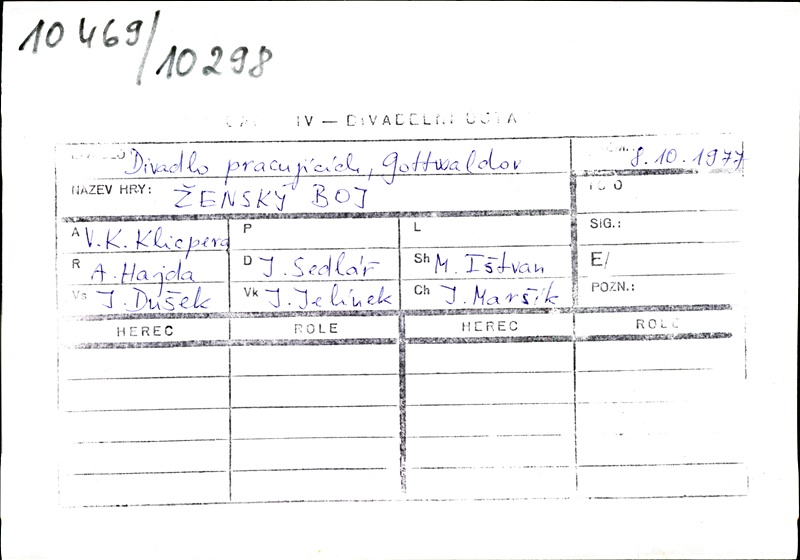 10 469/
10 298
IV — DIVADELNÍ ÚSTA
Divadlo pracujících, Gottwaldov 8.10.1977
NAZEV HRY: ŽENSKÝ BOJ
A V.K. Klicpera P L SIG.:
R A. Hajda D J. Sedlář Sh M. Ištvan E/
Vs J. Dušek Vk J. Jelínek Ch J. Maršík POZN.:
HEREC ROLE HEREC ROLE